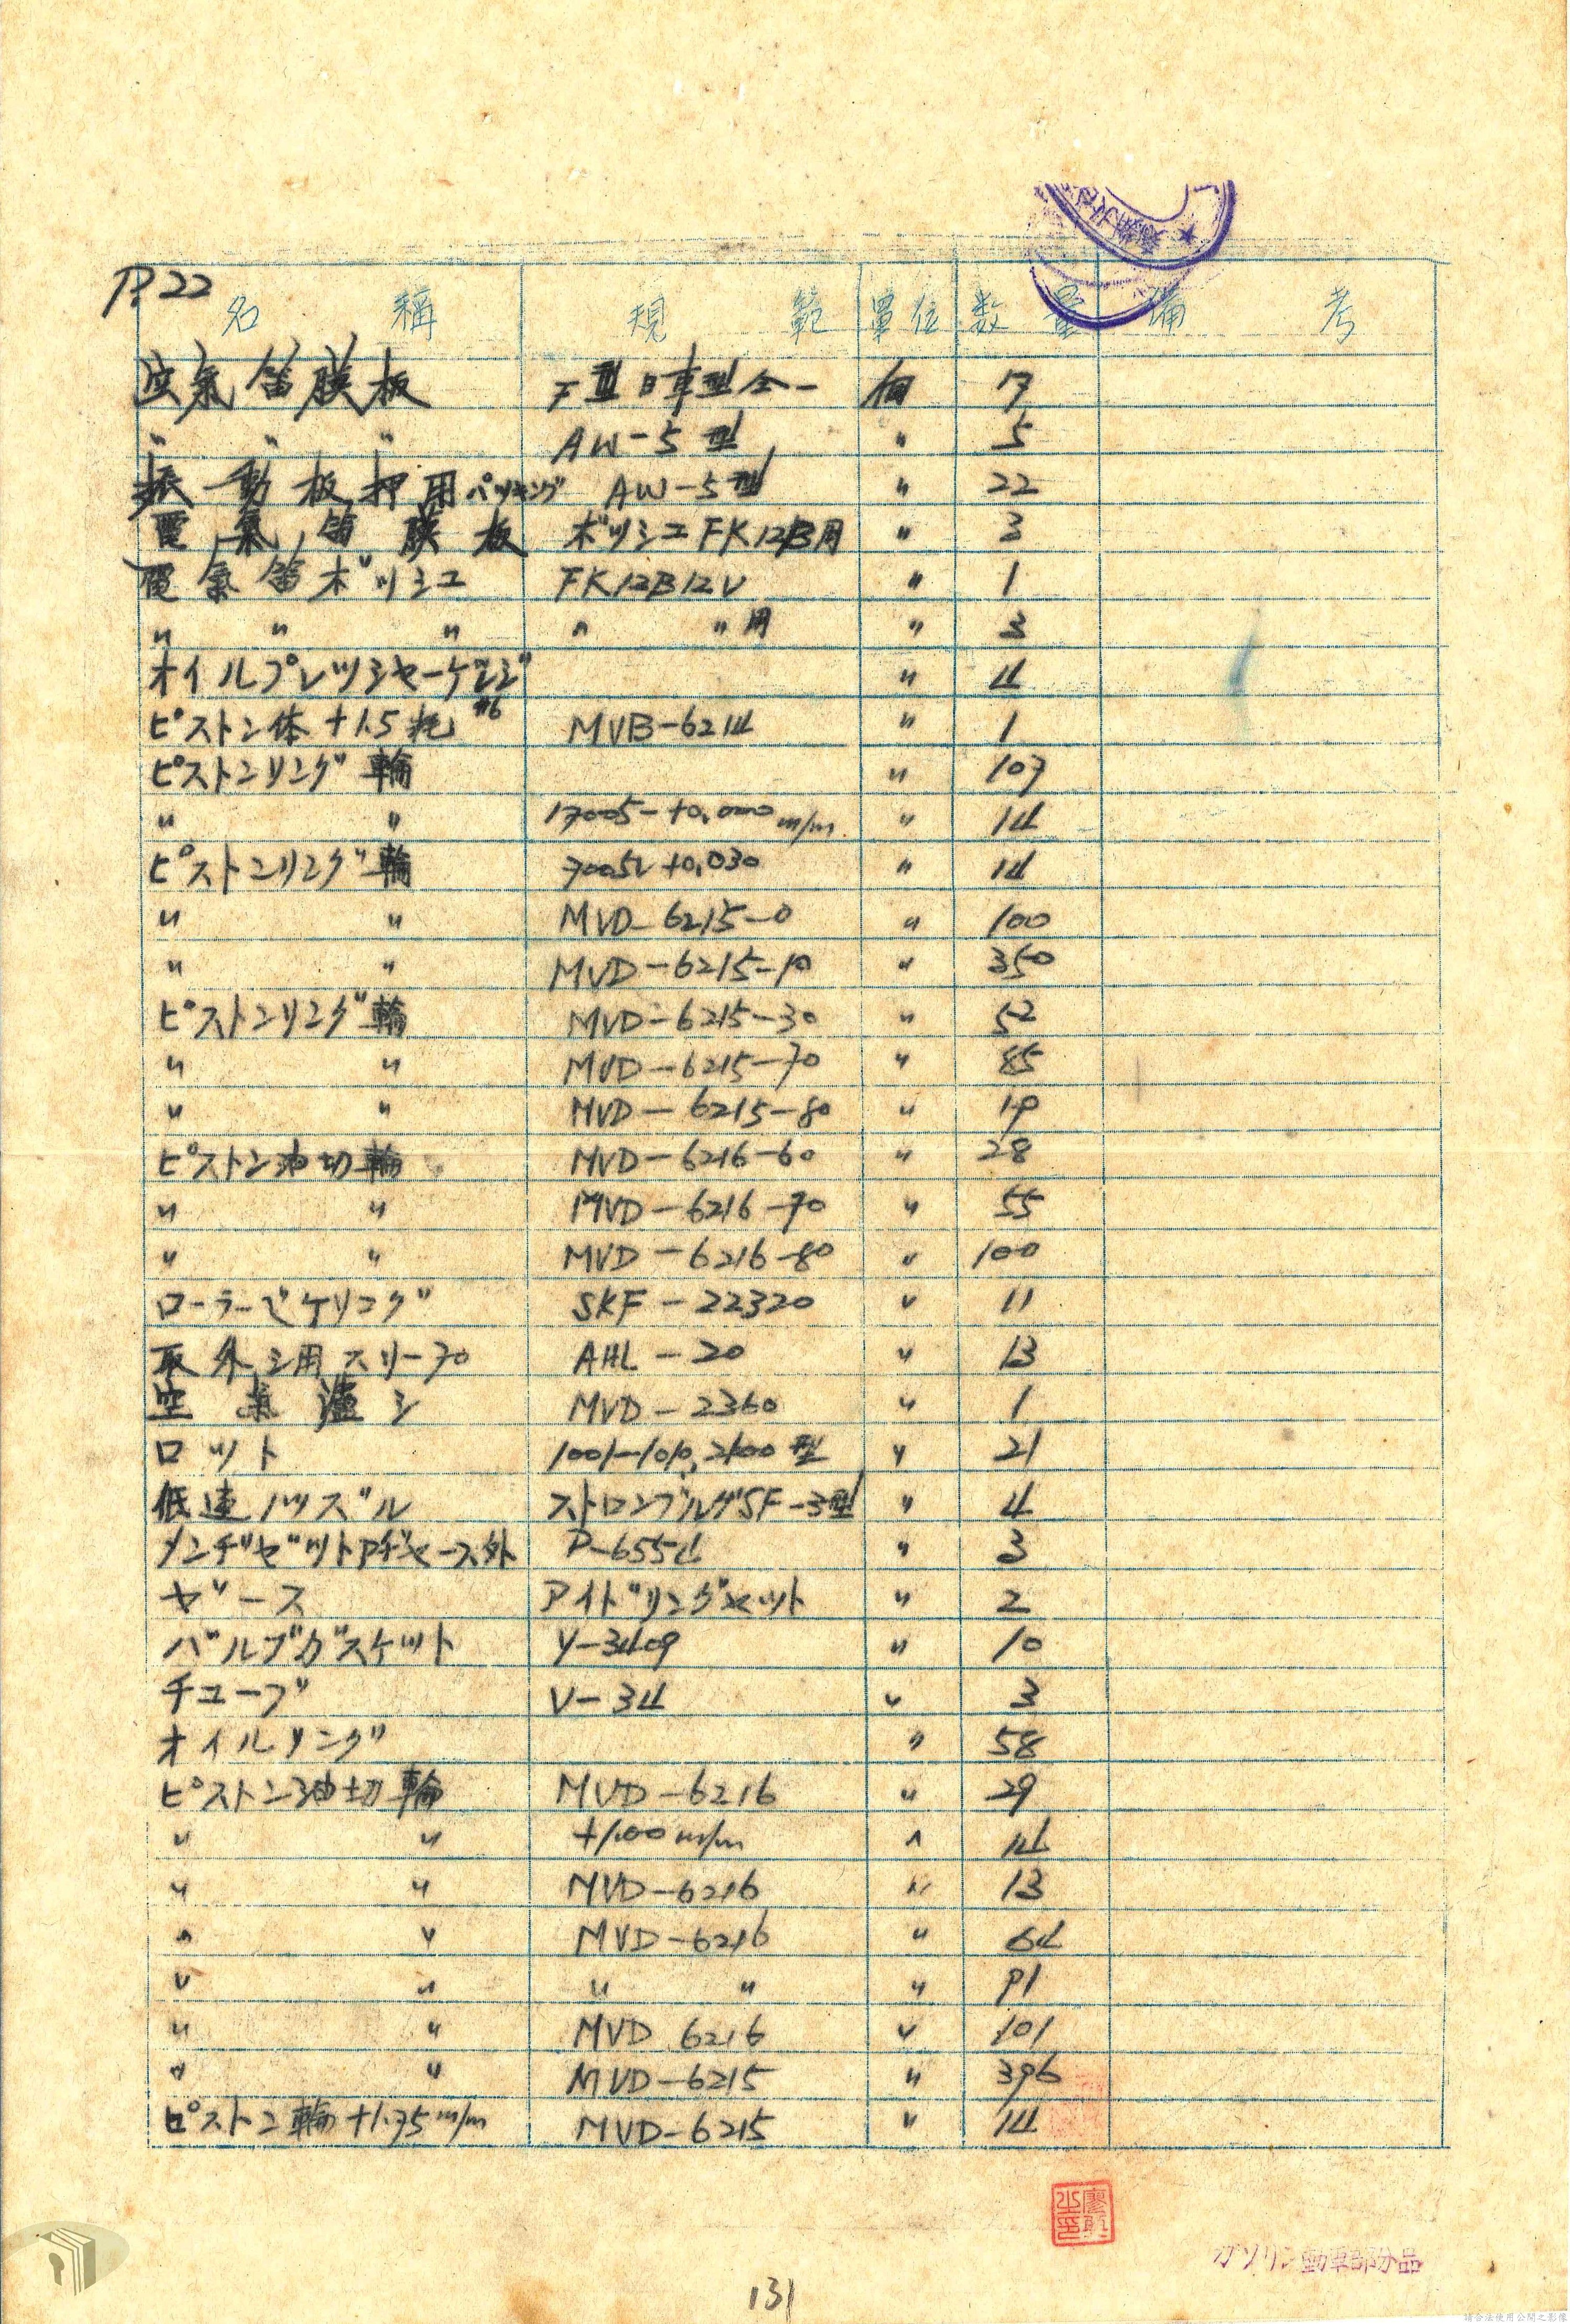 P.22
名稱 規範 單位 数量 備考
空氣笛膜板 F型日車型全一 個 17
〃 〃 〃 AW-5型 〃 5
振動板押用パッキング AW-5型 〃 22
電氣笛膜板 ボツシユFK12B用 〃 3
電氣笛ボツシユ FK12B12V 〃 1
〃 〃 〃 〃 〃用 〃 3
オイルプレツシヤーゲージ 〃 4
ピストン体+1.5粍 #6 MVB-6214 〃 1
ピストンリング輪 〃 107
〃 〃 17005-+0.000 m/m 〃 14
ピストンリング輪 +0.030 〃 14
〃 〃 MVD-6215-0 〃 100
〃 〃 MVD-6215-10 〃 350
ピストンリング輪 MVD-6215-30 〃 52
〃 〃 MVD-6215-70 〃 85
〃 〃 MVD-6215-80 〃 19
ピストン油切輪 MVD-6216-60 〃 28
〃 〃 MVD-6216-70 〃 55
〃 〃 MVD-6216-80 〃 100
ローラーベヤリング SKF-22320 〃 11
取外シ用スリーブ AHL-20 〃 13
空氣濾シ MVD-2360 〃 1
ロット 型 〃 21
低速ノッズル ストロンブルグSF-3型 〃 4
P-6554 〃 3
ゼース アイドリングゼット 〃 2
バルブガスケット V-3409 〃 10
チューブ V-34 〃 3
オイルリング 〃 58
ピストン油切輪 MVD-6216 〃 29
〃 〃 +1.00 m/m 〃 14
〃 〃 MVD-6216 〃 13
〃 〃 MVD-6216 〃 64
〃 〃 〃 〃 〃 91
〃 〃 MVD 6216 〃 101
〃 〃 MVD-6215 〃 396
ピストン輪+1.75m/m MVD-6215 〃 14
ガソリン動車部分品
131
請合法使用公開之影像